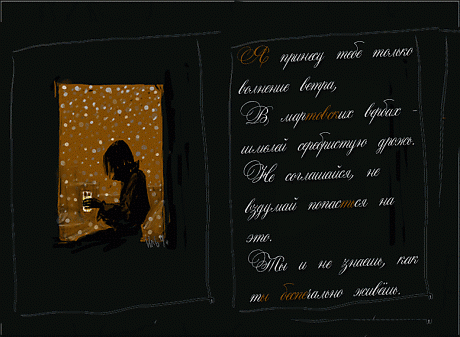 Я принесу тебе только
волнение ветра,
В мартовских вербах -
шмелей серебристую дрожь.
Не соглашайся, не
вздумай попасться на
это.
Ты и не знаешь, как
ты беспечально живёшь.